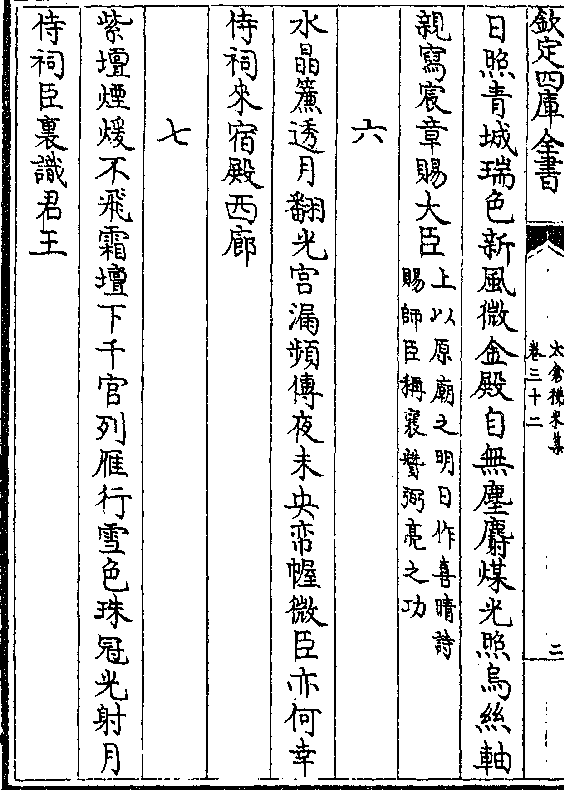 欽定四庫全書
太倉稊米集
卷三十二
二
日照青城瑞色新風微金殿自無塵麝煤光照烏絲軸
親寫宸章賜大臣
上以原廟之明日作喜晴詩
賜師臣稱襃賛弼亮之功
六
水晶簾透月翻光宫漏頻傳夜未央帟幄微臣亦何幸
侍祠來宿殿西廊
七
紫壇煙煖不飛霜壇下千官列雁行雪色珠冠光射月
侍祠臣裏識君王